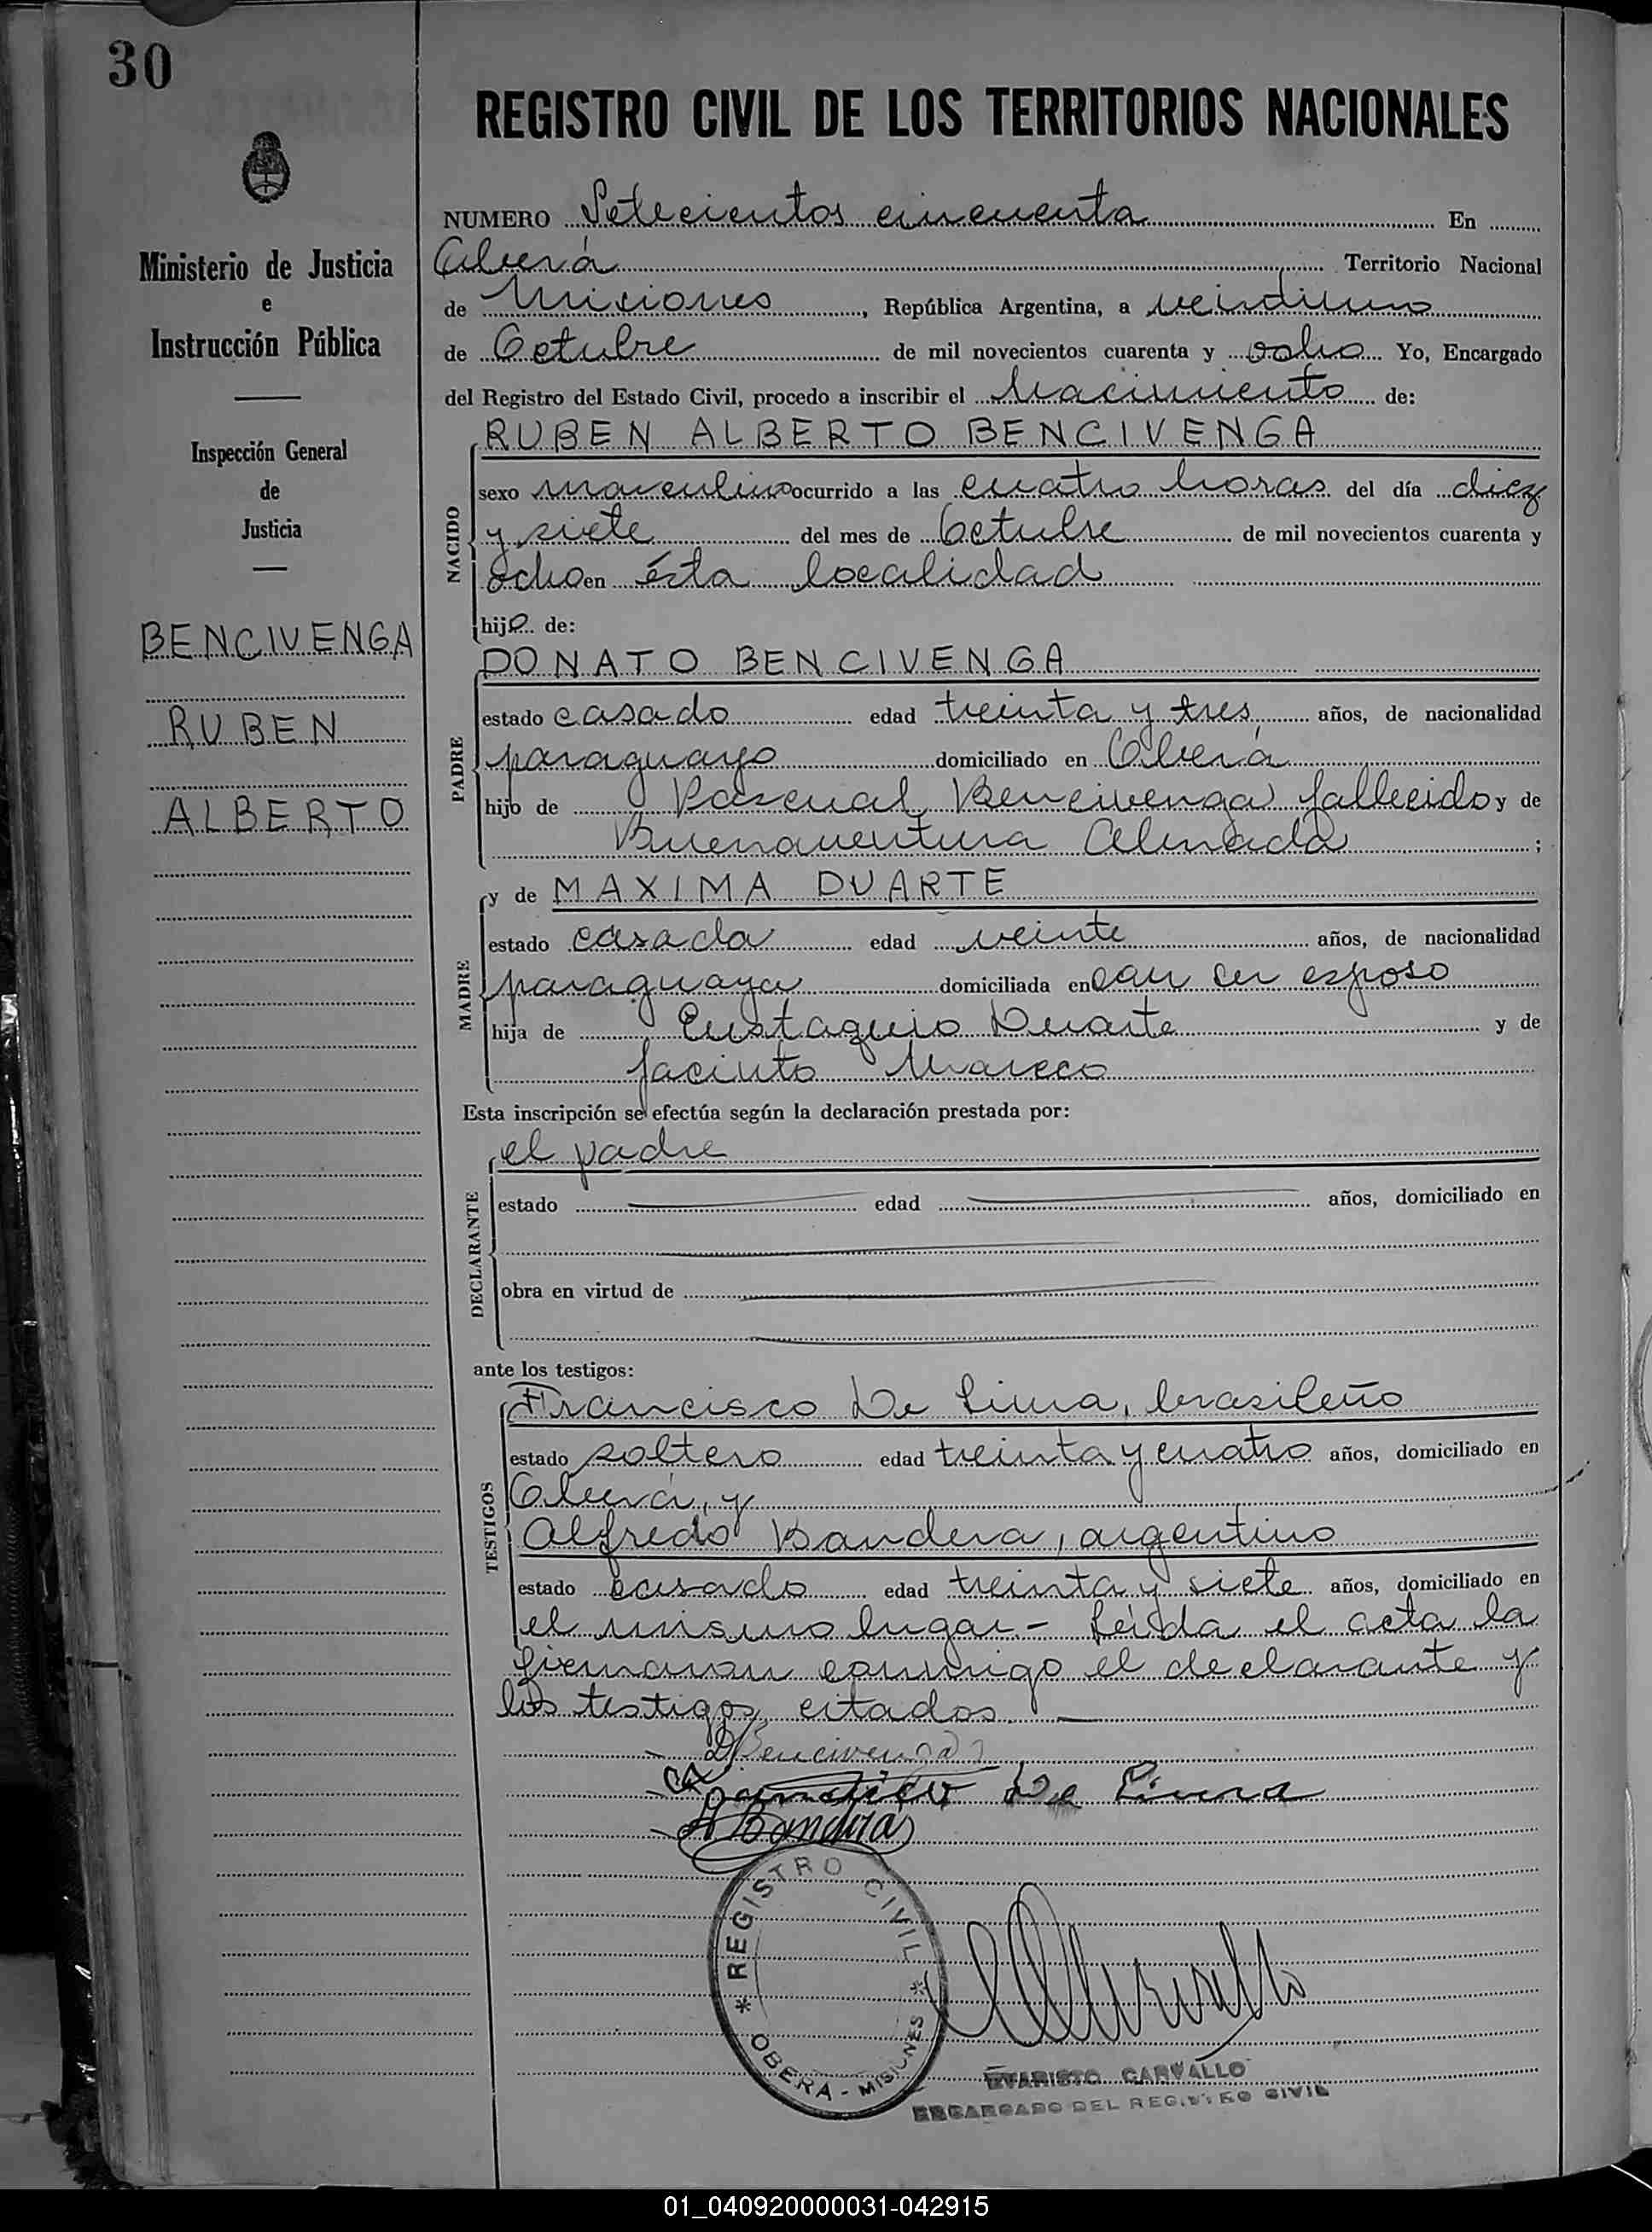 30
REGISTRO CIVIL DE LOS TERRITORIOS NACIONALES
Ministerio de Justicia
e
Instrucción Pública
Inspección General
de
Justicia
BENCIVENGA
RUBEN
ALBERTO
NUMERO Setecientos cincuenta En
Oberá Territorio Nacional
de Misiones, República Argentina, a veintiuno
de Octubre de mil novecientos cuarenta y ocho Yo, Encargado
del Registro del Estado Civil, procedo a inscribir el Nacimiento de:
NACIDO
RUBEN ALBERTO BENCIVENGA
sexo masculino ocurrido a las cuatro horas del día diez
y siete del mes de Octubre de mil novecientos cuarenta y
ocho en ésta localidad
hijo de:
PADRE
DONATO BENCIVENGA
estado casado edad treinta y tres años, de nacionalidad
paraguayo domiciliado en Oberá
hijo de Pascual Bencivenga fallecido y de
Buenaventura Almada ;
MADRE
y de MAXIMA DUARTE
estado casada edad veinte años, de nacionalidad
paraguaya domiciliada en con su esposo
hija de Eustaquio Duarte y de
Jacinto Mareco
Esta inscripción se efectúa según la declaración prestada por:
DECLARANTE
el padre
estado edad años, domiciliado en
obra en virtud de
ante los testigos:
TESTIGOS
Francisco De Lima, brasileño
estado soltero edad treinta y cuatro años, domiciliado en
Oberá, y
Alfredo Bandera, argentino
estado casado edad treinta y siete años, domiciliado en
el mismo lugar.- Leída el acta la
firmaron conmigo el declarante y
los testigos citados.
D Bencivenga
De Lima
A Bandera
REGISTRO CIVIL
OBERA - MISIONES
EVARISTO CARVALLO
ENCARGADO DEL REGISTRO CIVIL
01_040920000031-042915